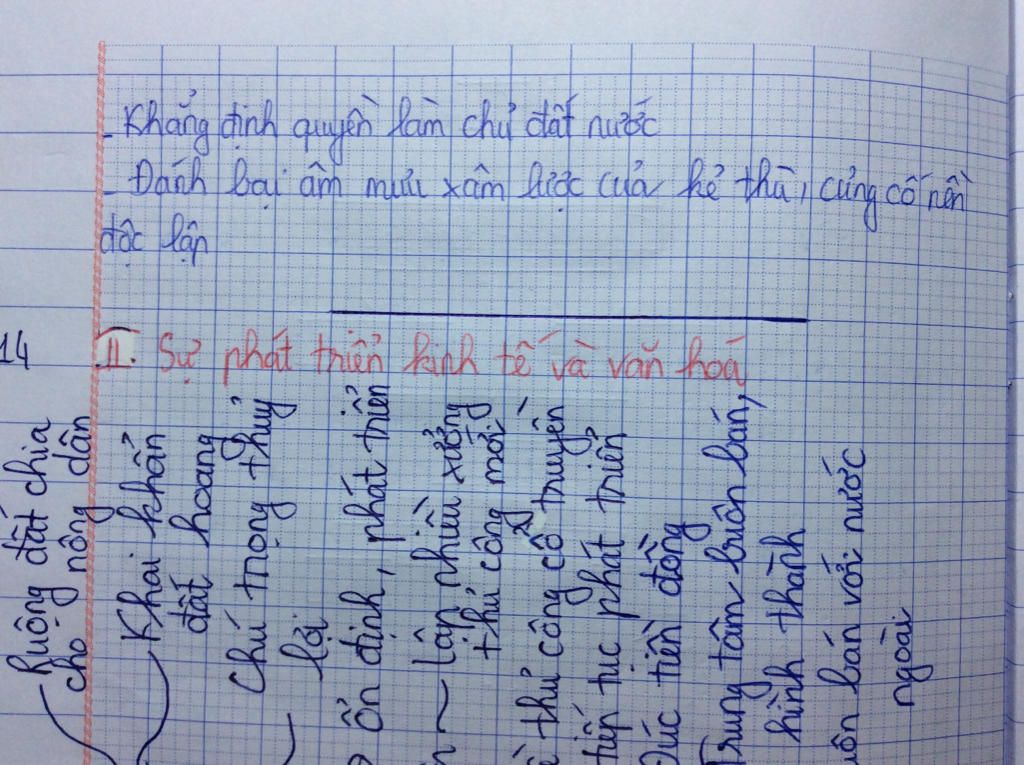 - Khẳng định quyền làm chủ đất nước
- Đánh bại âm mưu xâm lược của kẻ thù, củng cố nền
độc lập
14
II. Sự phát triển kinh tế và văn hoá
Ruộng đất chia
cho nông dân
Khai khẩn
đất hoang
Chú trọng thuỷ
lợi
Ổn định, phát triển
Lập nhiều xưởng
thủ công mới
thủ công cổ truyền
tiếp tục phát triển
Đúc tiền đồng
Trung tâm buôn bán,
hình thành
bán với nước
ngoài